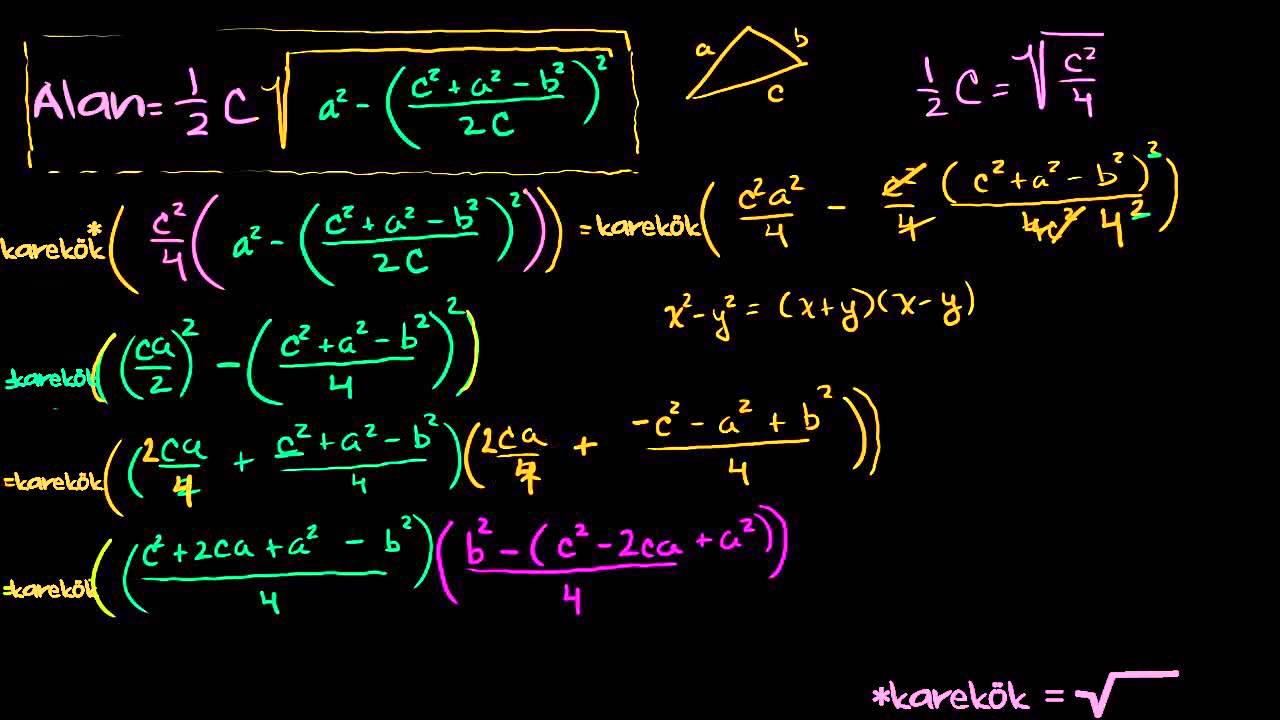 Alan = 1/2 C √(a² - ((c² + a² - b²)/2C)²)
a b c
1/2 C = √(c²/4)
karekök* ( c²/4 ( a² - ((c² + a² - b²)/2C)² ) ) = karekök ( c²a²/4 - c²/4 (c² + a² - b²)²/4c² 4² )
x² - y² = (x+y)(x-y)
=karekök ( (ca/2)² - ((c² + a² - b²)/4)² )
=karekök ( ( 2ca/4 + (c² + a² - b²)/4 ) ( 2ca/4 + (-c² - a² + b²)/4 ) )
=karekök ( ( (c² + 2ca + a² - b²)/4 ) ( (b² - (c² - 2ca + a²))/4 ) )
*karekök = √